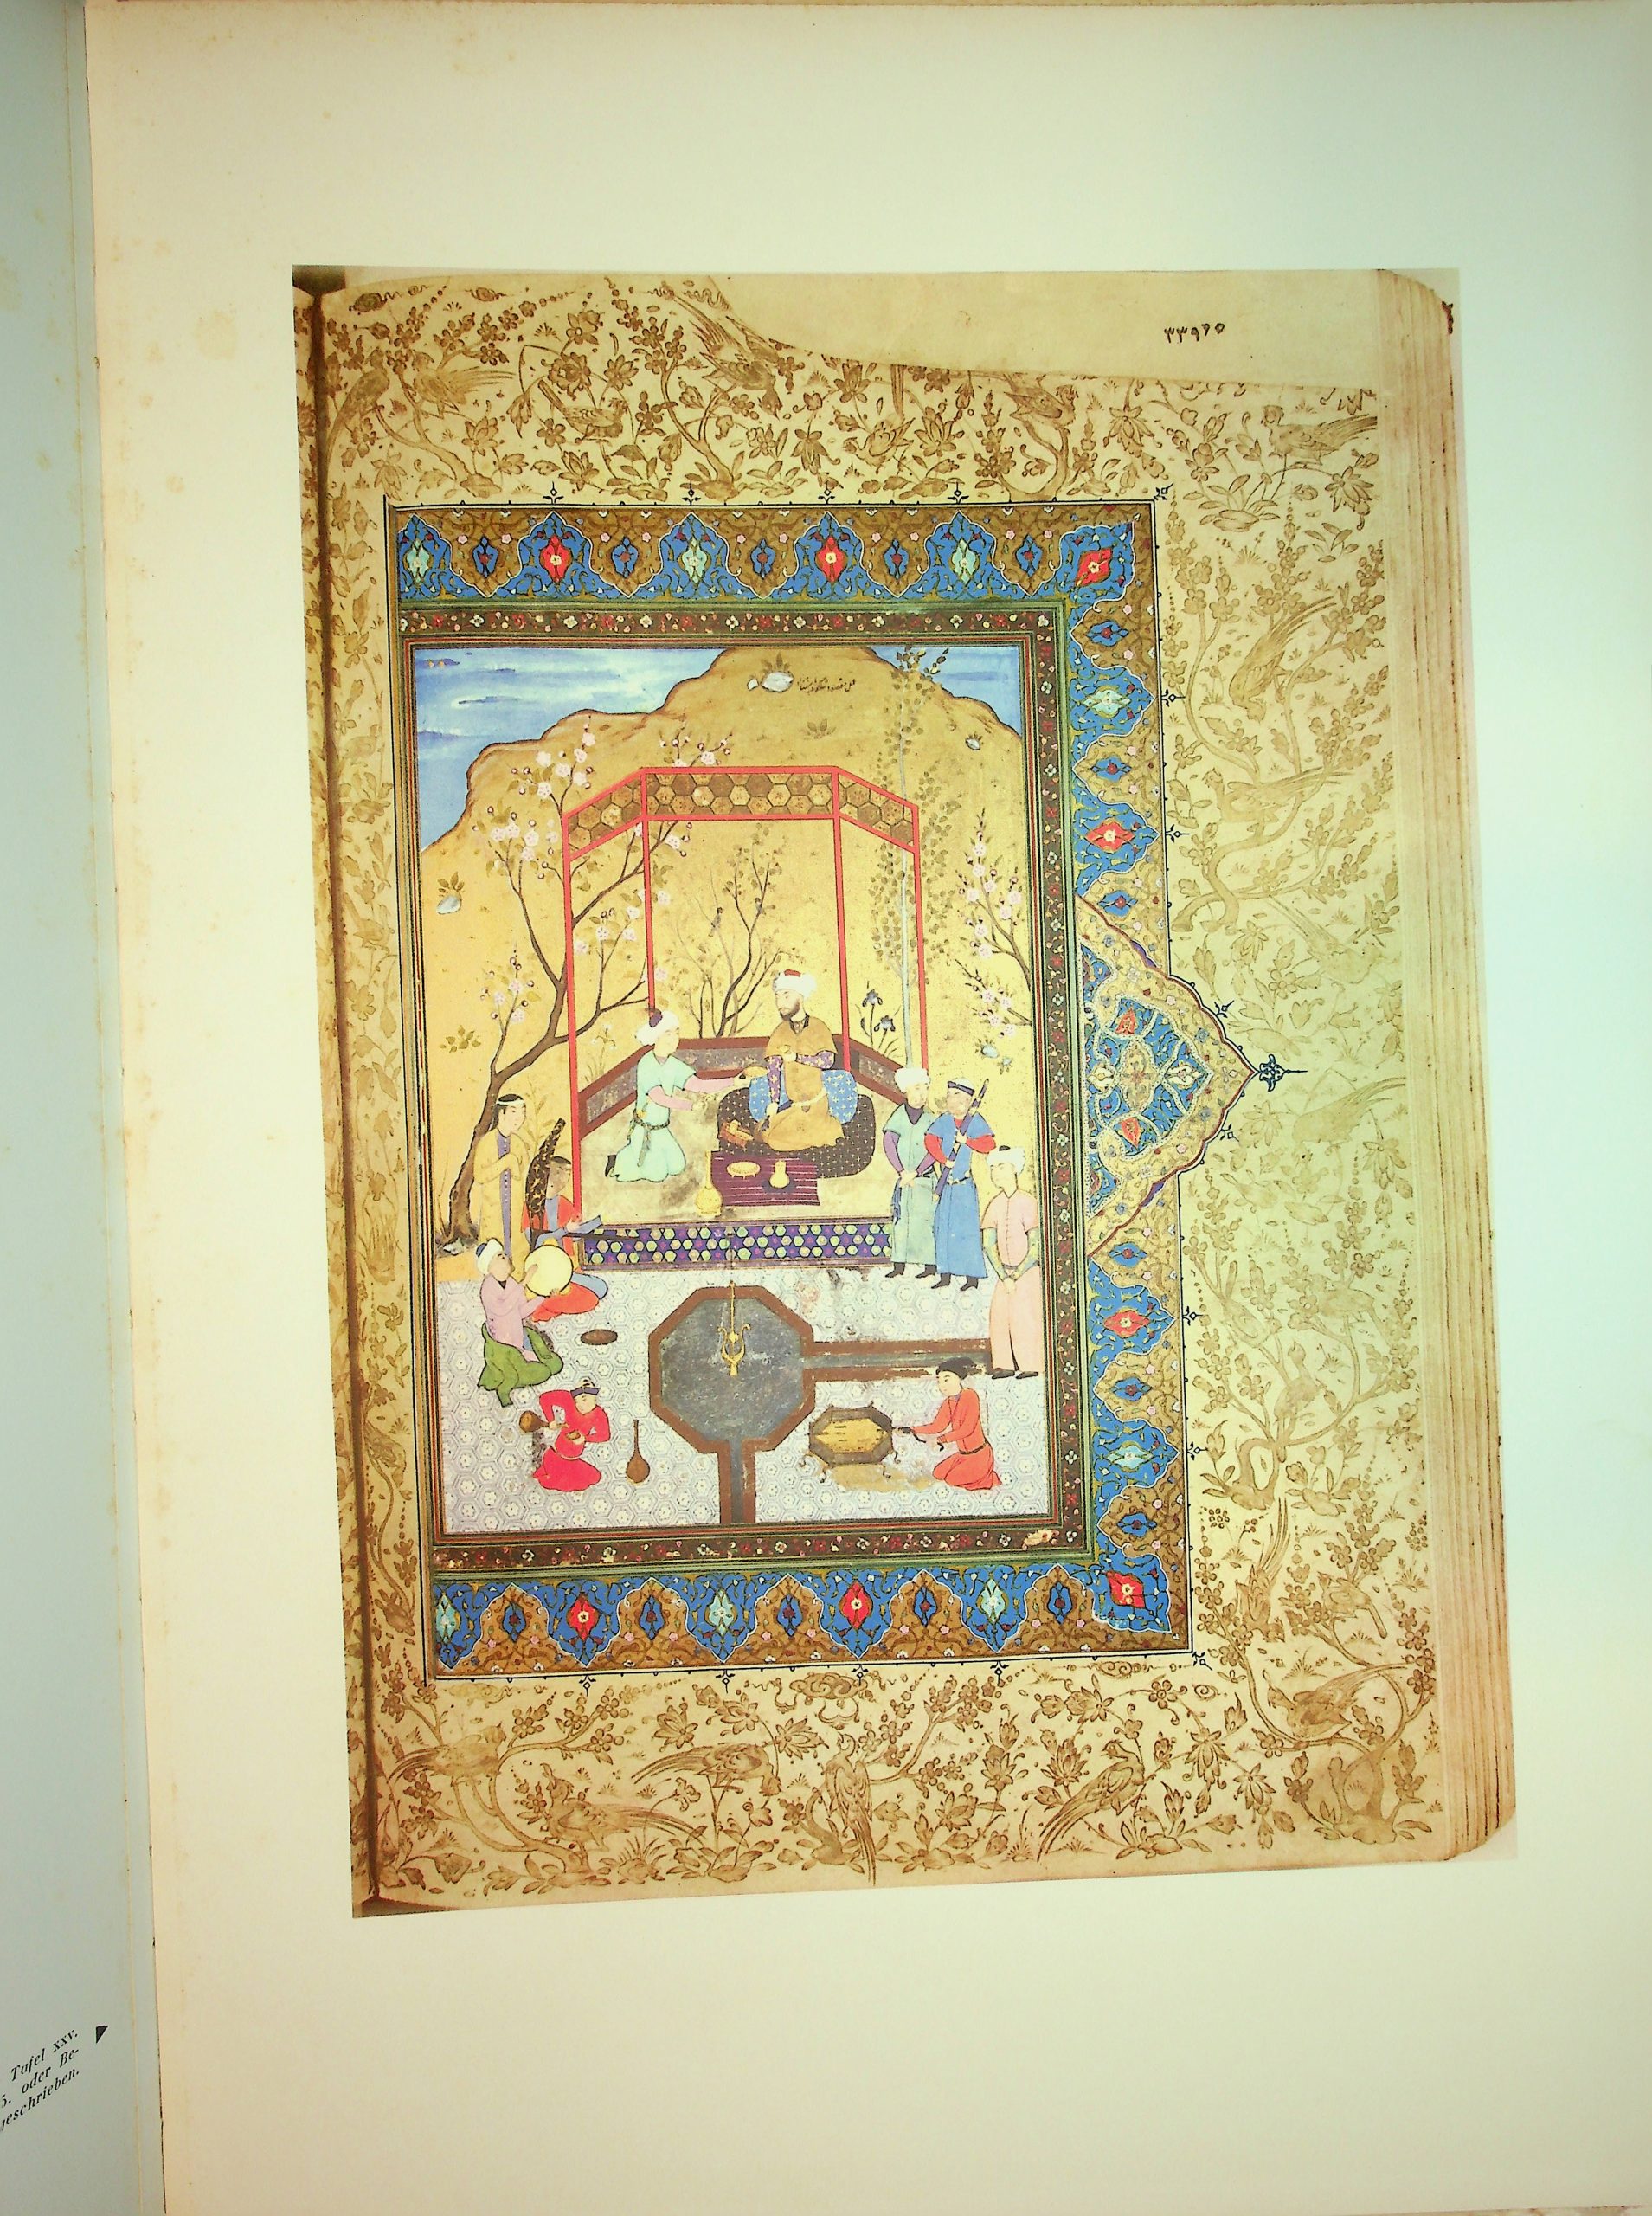 ۳۳۹۶۵
Tafel XXV.
5. oder Be-
geschrieben.